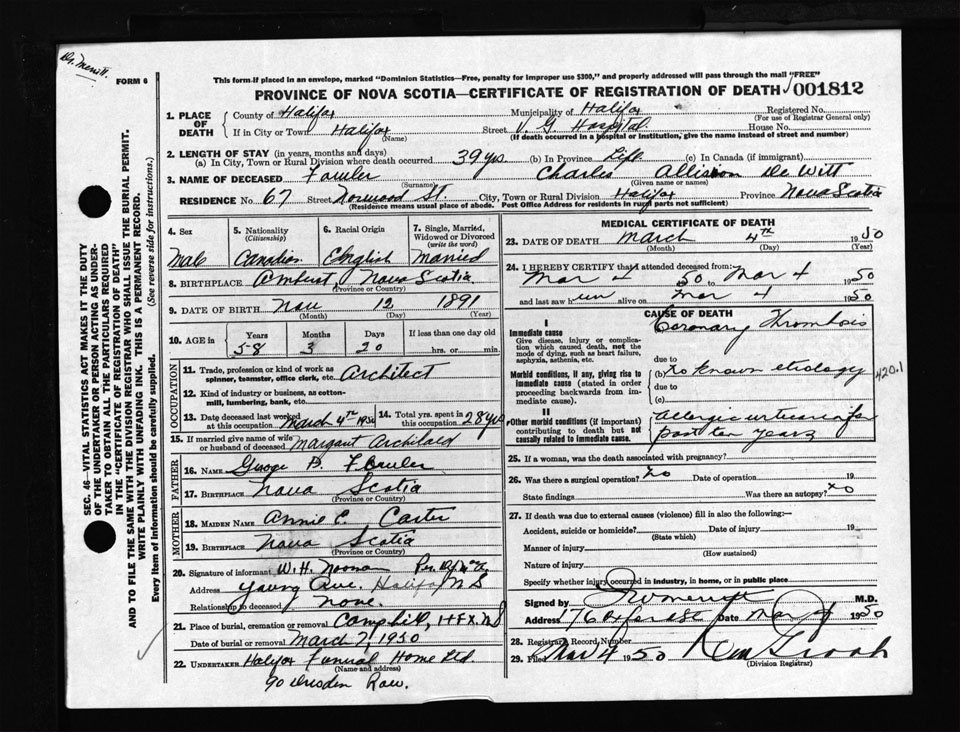 Dr. Merritt.
FORM 6
This form if placed in an envelope, marked "Dominion Statistics—Free, penalty for improper use $300," and properly addressed will pass through the mail "FREE"
PROVINCE OF NOVA SCOTIA—CERTIFICATE OF REGISTRATION OF DEATH 001812
1. PLACE OF DEATH County of Halifax Municipality of Halifax Registered No.
(For use of Registrar General only)
If in City or Town Halifax Street V. G. Hospital House No.
(Name) (If death occurred in a hospital or institution, give the name instead of street and number)
2. LENGTH OF STAY (in years, months and days)
(a) In City, Town or Rural Division where death occurred 39 yrs. (b) In Province Life (c) In Canada (if immigrant)
3. NAME OF DECEASED Fowler Charles Allison De Witt
(Surname) (Given name or names)
RESIDENCE No. 67 Street Norwood St City, Town or Rural Division Halifax Province Nova Scotia
(Residence means usual place of abode. Post Office Address for residents in rural parts not sufficient)
4. Sex 5. Nationality (Citizenship) 6. Racial Origin 7. Single, Married, Widowed or Divorced (write the word)
Male Canadian English Married
8. BIRTHPLACE Amherst, Nova Scotia
(Province or Country)
9. DATE OF BIRTH Nov 12 1891
(Month) (Day) (Year)
10. AGE in Years Months Days If less than one day old
58 3 20 hrs. or min.
OCCUPATION
11. Trade, profession or kind of work as spinner, teamster, office clerk, etc. Architect
12. Kind of industry or business, as cotton-mill, lumbering, bank, etc.
13. Date deceased last worked at this occupation March 4th 1950 14. Total yrs. spent in this occupation 28 yrs
15. If married give name of wife or husband of deceased Margaret Archibald
FATHER
16. NAME George B. Fowler
17. BIRTHPLACE Nova Scotia
(Province or Country)
MOTHER
18. MAIDEN NAME Annie E. Carter
19. BIRTHPLACE Nova Scotia
(Province or Country)
20. Signature of informant W. H. Noonan Per
Address Young Ave. Halifax N S
Relationship to deceased None.
21. Place of burial, cremation or removal Camphill, HFX. NS
Date of burial or removal March 7, 1950
22. UNDERTAKER Halifax Funeral Home Ltd
(Name and address)
90 Dresden Row.
MEDICAL CERTIFICATE OF DEATH
23. DATE OF DEATH March 4th 1950
(Month) (Day) (Year)
24. I HEREBY CERTIFY that I attended deceased from:
Mar 4 50 to Mar 4 1950
and last saw him alive on Mar 4 1950
CAUSE OF DEATH
I
Immediate cause
Give disease, injury or complication which caused death, not the mode of dying, such as heart failure, asphyxia, asthenia, etc.
Coronary Thrombosis
due to
Morbid conditions, if any, giving rise to immediate cause (stated in order proceeding backwards from immediate cause).
(b) No known etiology
420.1
due to
(c)
II
Other morbid conditions (if important) contributing to death but not causally related to immediate cause.
Allergic urticaria for
past ten years
25. If a woman, was the death associated with pregnancy?
26. Was there a surgical operation? No Date of operation 19
State findings Was there an autopsy? No
27. If death was due to external causes (violence) fill in also the following:—
Accident, suicide or homicide? Date of injury 19
(State which)
Manner of injury
(How sustained)
Nature of injury
Specify whether injury occurred in industry, in home, or in public place
Signed by M.D.
Address 176 Oxford St Date Mar 4 1950
28. Registrar's Record Number
29. Filed Mar 4 1950
(Division Registrar)
SEC. 46—VITAL STATISTICS ACT MAKES IT THE DUTY OF THE UNDERTAKER OR PERSON ACTING AS UNDERTAKER TO OBTAIN ALL THE PARTICULARS REQUIRED IN THE "CERTIFICATE OF REGISTRATION OF DEATH" AND TO FILE THE SAME WITH THE DIVISION REGISTRAR WHO SHALL ISSUE THE BURIAL PERMIT.
WRITE PLAINLY WITH UNFADING INK. THIS IS A PERMANENT RECORD.
Every item of information should be carefully supplied. (See reverse side for instructions.)